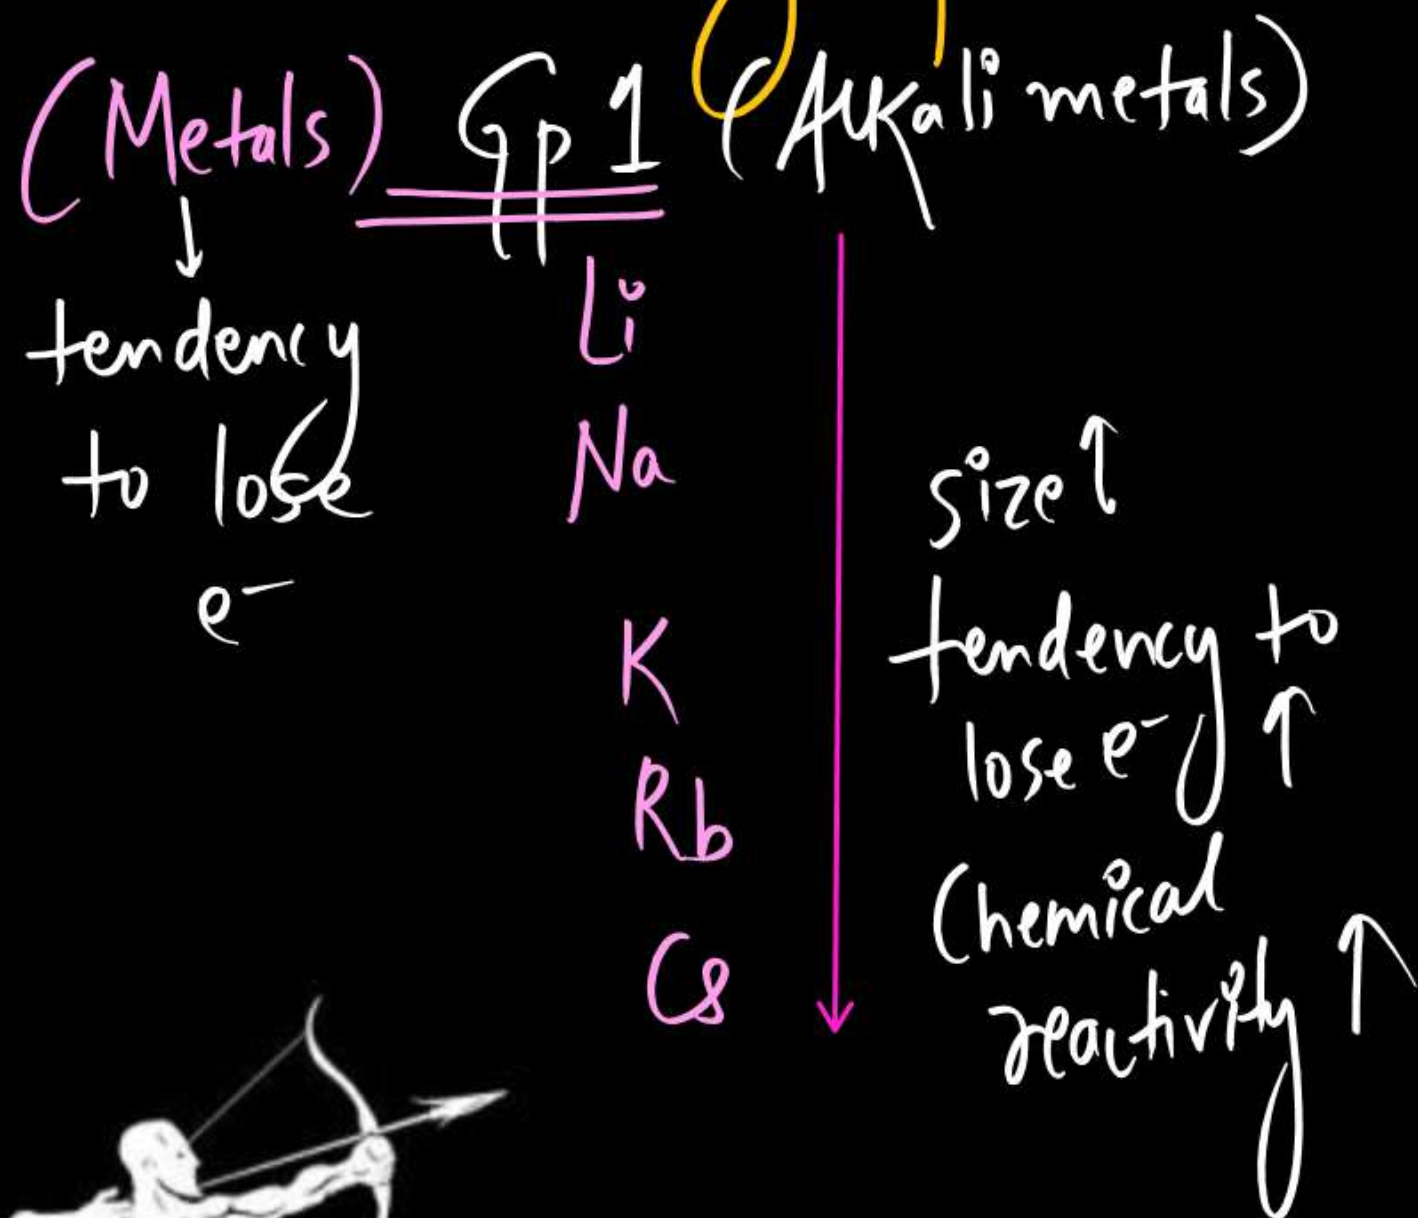 (Metals) Gp 1 (Alkali metals)
↓
tendency
to lose
e⁻
Li
Na
K
Rb
Cs
size ↑
tendency to
lose e⁻ ↑
Chemical
reactivity ↑